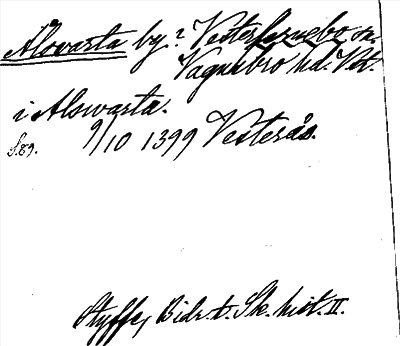 Alsvarta by? Vesterfernebo sn.
Vagnsbro hd. Vstm.
i Alswarta.
S.89. 9/10 1399 Vesterås.
Styffe, Bidr. t. Sk. hist. II.